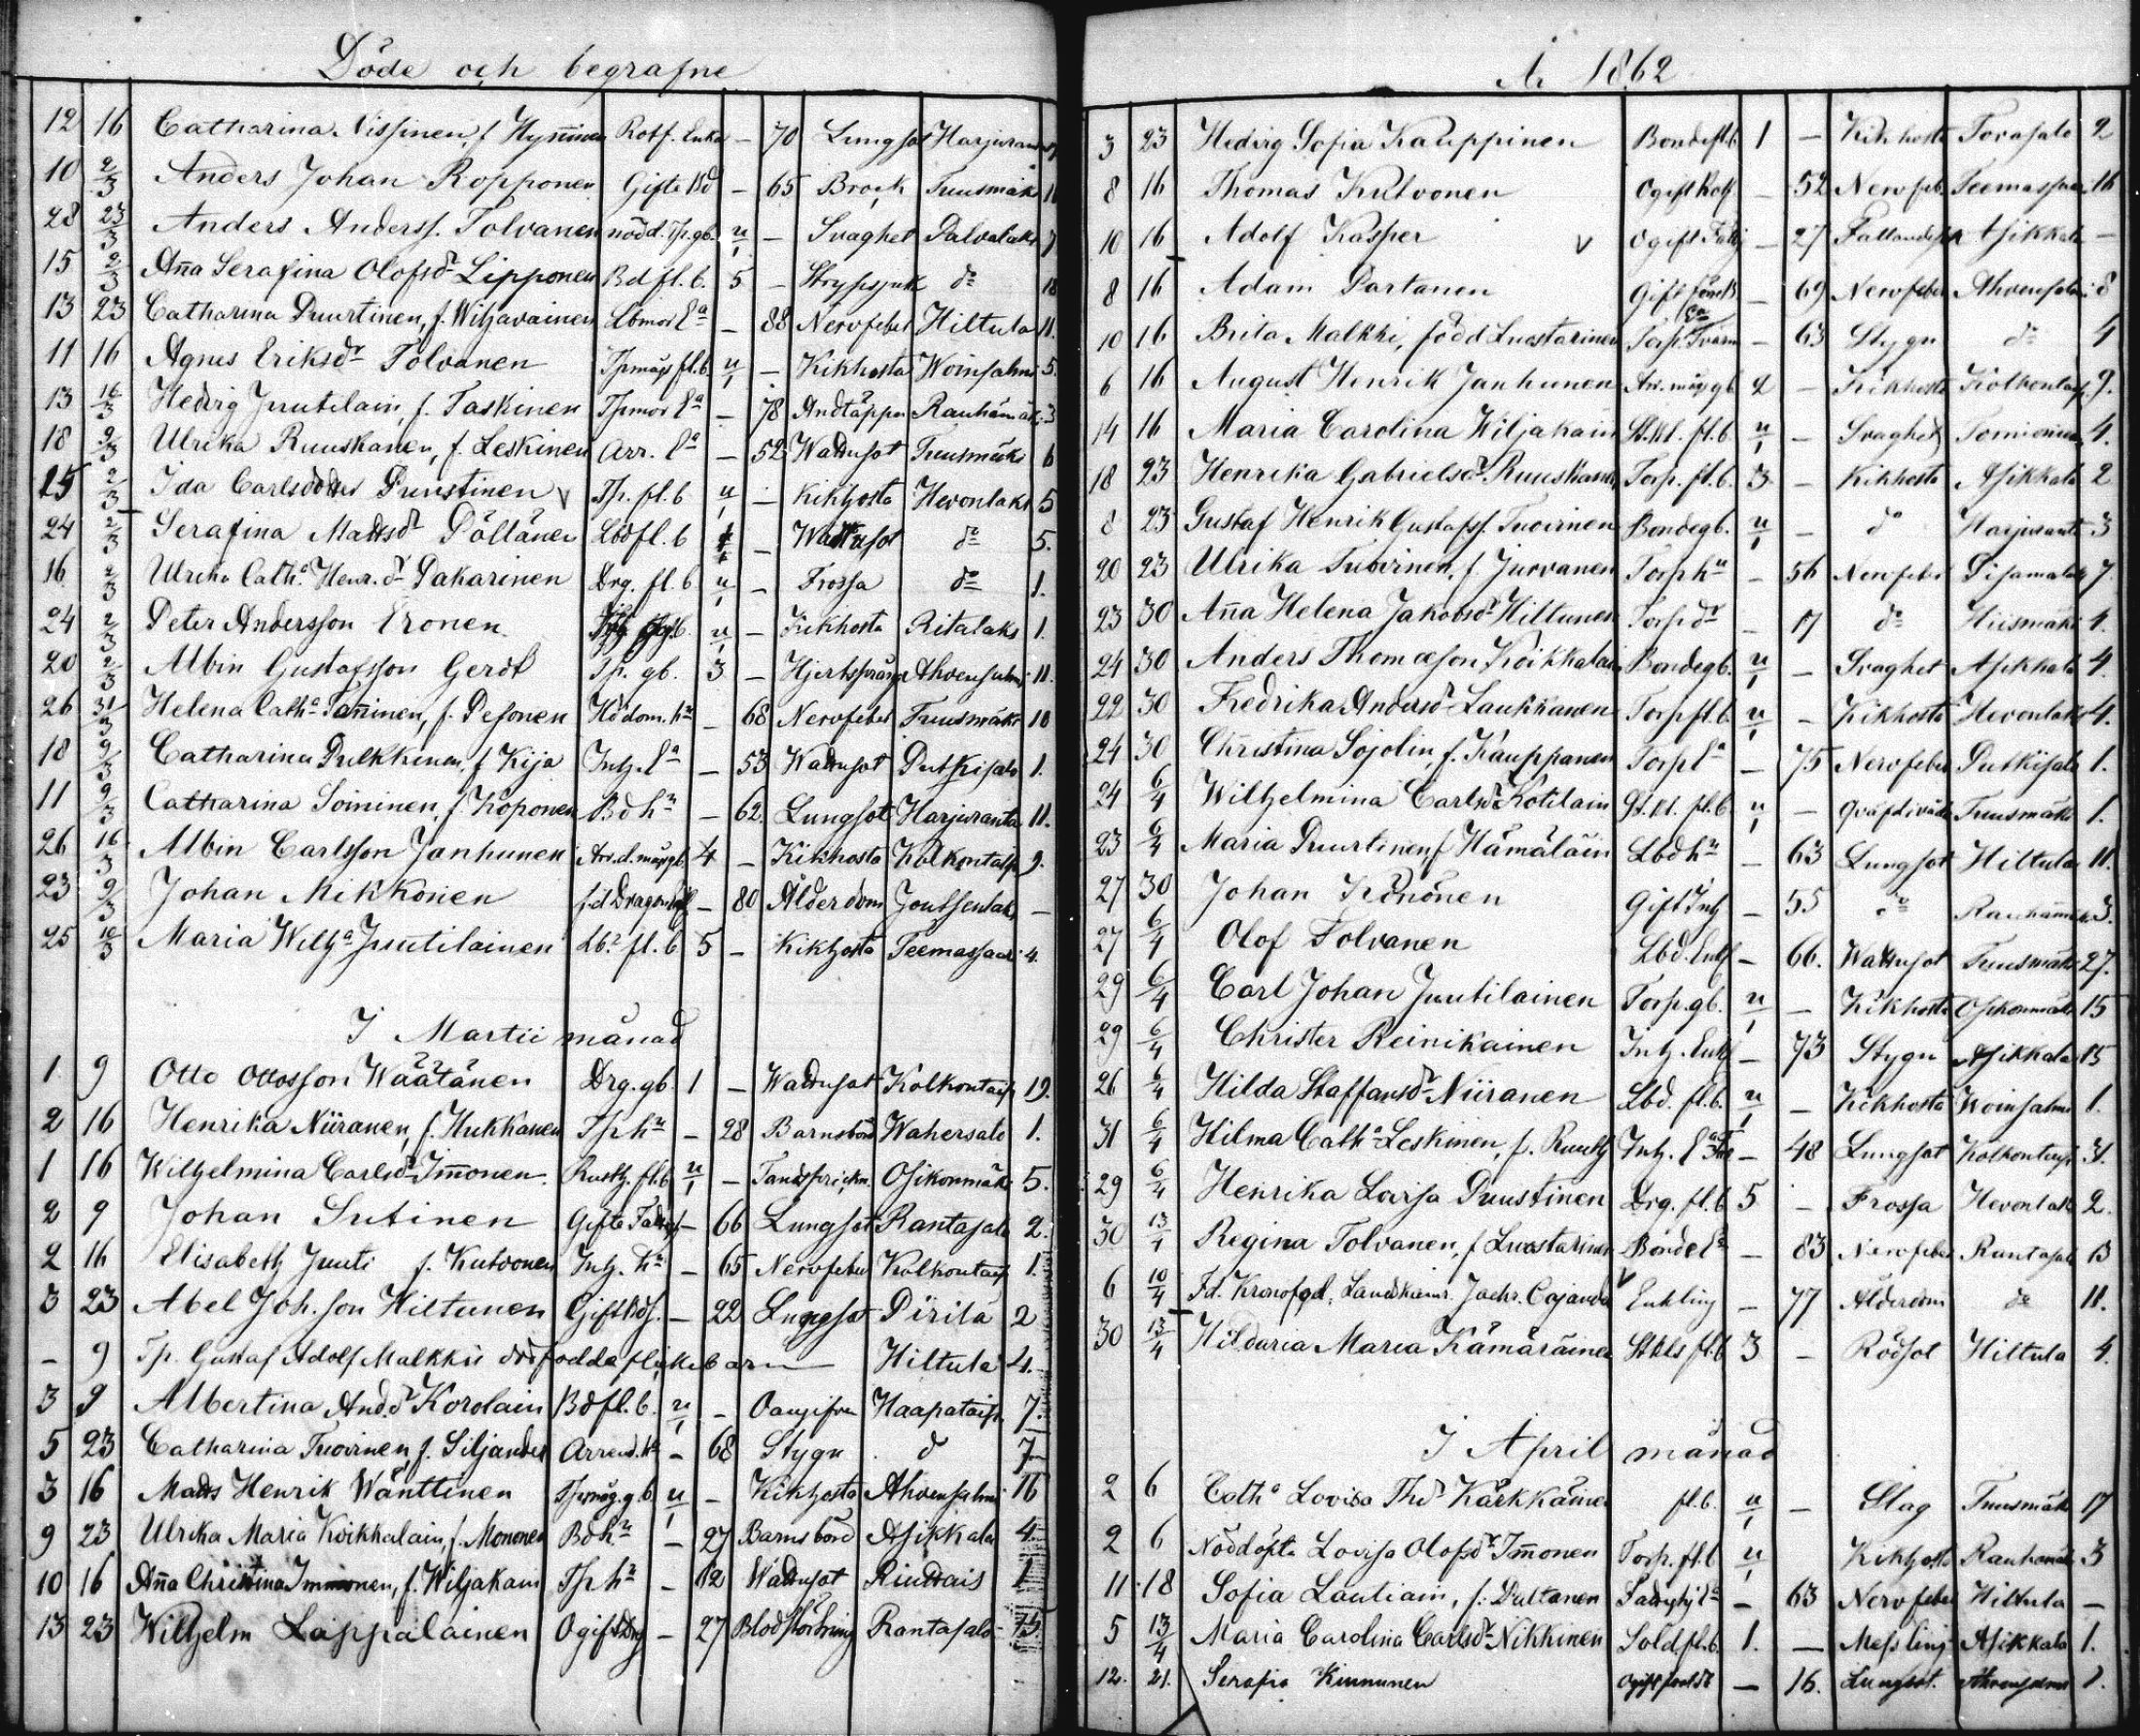 Döde och begrafne
12 16 Catharina Nissinen, f. Hyninen Rotf. Enka - 70 Lungsot Harjuran
10 2/3 Anders Johan Ropponen Gifte Bd - 65 Bråck Tuusmäk 11
28 23/3 Anders Anderss. Tolvanen nödd. Tp. gb. u/1 - Svaghet Palvalaks 7
15 2/3 Aña Serafina Olofsdr Lipponen Bd fl. b. 5 - Strypsjuk do 18
13 23 Catharina Puurtinen, f. Wiljavainen Lbmor Ea - 88 Nervfeber Hiltula 11.
11 16 Agnes Eriksdr Tolvanen Tpmågs fl. b. u/1 - Kikhosta Woinsalmi 5.
13 16/3 Hedvig Juutilain, f. Taskinen Tpmor Ea - 78 Andtäppa Rauhamäk 3
18 9/3 Ulrika Ruuskanen, f. Leskinen Arr. Ea - 52 Wattusot Tuusmäki 6
15 2/3 Ida Carlsdotter Puustinen v Tp. fl. b u/1 - Kikhosta Hevonlaks 5
24 2/3 Serafina Mattsdr Pöllänen Lbd fl. b - Wattusot do 5.
16 2/3 Ulrika Catha Henr. dr Pakarinen Drg. fl. b u/1 - Frossa do 1.
24 2/3 Peter Andersson Eronen gb. u/1 - Kikhosta Ritalaks 1.
20 2/3 Albin Gustafsson Gerdt Tp. gb. 3 - Hjertsprång Ahvensalmi 11.
26 31/3 Helena Catha Tañinen, f. Pesonen Hd dom. hu - 68 Nervfeber Tuusmäki 10
18 9/3 Catharina Pulkkinen, f Kija Inh. Ea - 53 Wattusot Putkisalo 1.
11 9/3 Catharina Soininen, f. Koponen Bd hu - 62. Lungsot Harjuranta 11.
26 16/3 Albin Carlsson Janhunen Arr.d. mågs gb 4 - Kikhosta Kolkontaip 9.
23 9/3 Johan Mikkonen f.d Dragon - 80 Ålderdom Joutsenlaks -
25 10/3 Maria Wilha Juutilainen Lbr fl. b 5 - Kikhosta Teemassaari 4.
I Martii månad
1 9 Otto Ottosson Wäätänen Drg. gb. 1 - Wattusot Kolkontaip 19.
2 16 Henrika Niiranen, f. Hukkanen Tp hu - 28 Barnsbörd Wahersalo 1.
1 16 Wilhelmina Carlsdr Imonen Rusth. fl. b u/1 - Tandsprickn. Osikonmäki 5.
2 9 Johan Sutinen Gifte - 66 Lungsot Rantasalo 2.
2 16 Elisabeth Juuti f. Kutvonen Inh. hu - 65 Nervfeber Kolkontaip 1.
3 23 Abel Joh. son Hiltunen Gift Bdf. - 22 Lungsot Pirilä 2
- 9 Tp. Gustaf Adolf Malkkis dödfödda flickebarn Hiltula 4.
3 9 Albertina And. dr Korolain Bd fl. b. u/1 - Oangifven Haapataip 7.
5 23 Catharina Tuovinen, f. Siljander Arrend. hu - 68 Stygn do 7
3 16 Matts Henrik Wänttinen Tpmåg. g b u/1 - Kikhosta Ahvensalmi 16
9 23 Ulrika Maria Koikkalain, f. Mononen Bd hu - 27 Barnsbörd Asikkala 4
10 16 Aña Christina Immonen, f. Wiljakain Tp hu - 42 Wattusot 1
13 23 Wilhelm Lappalainen Ogift Drg - 27 Blodstörtning Rantasalo 15
År 1862
3 23 Hedvig Sofia Kauppinen Bonde fl. b. 1 - Kikhosta Torasalo 2
8 16 Thomas Kutvonen Ogift Rotf. - 52 Nervfeb. Teemassaar 16
10 16 Adolf Kasper v Ogift - 27 Fallandesot Asikkala -
8 16 Adam Partanen Gift - 69 Nervfeber Ahvensalmi 8
10 16 Brita Malkki, född Luostarinen Torp. - 63 Stygn do 4
6 16 August Henrik Janhunen Arr. mågs gb 2 - Kikhosta Kolkontaip 9.
14 16 Maria Carolina Wiljakain St. kl. fl. b. u/1 - Svaghet 4.
18 23 Henrika Gabrielsdr Ruuskanen Torp. fl. b. 3 - Kikhosta Asikkala 2
8 23 Gustaf Henrik Gustafss. Tuovinen Bonde gb. u/1 - do Harjuranta 3
20 23 Ulrika Tuovinen, f. Jurvanen Torp hu - 56 Nervfeber Pisamalaks 7.
23 30 Aña Helena Jakobsdr Hiltunen Torp dr - 17 do Hiismäki 1.
24 30 Anders Thomasson Koikkalain Bonde gb. u/1 - Svaghet Asikkala 4.
22 30 Fredrika Andersdr Laukkanen Torp fl. b u/1 - Kikhosta Hevonlaks 4.
24 30 Christina Sojolin, f. Kauppanen Torp Ea - 75 Nervfeber Putkisalo 1.
24 6/4 Wilhelmina Carlsdr Kotilain St. kl. fl. b. u/1 - Qväfd i våda Tuusmäki 1.
23 6/4 Maria Puurtinen, f Hämäläin Lbd hu - 63 Lungsot Hiltula 11.
27 30 Johan Könönen Gift Inh - 55 do Rauhamäk 3.
27 6/4 Olof Tolvanen Lbd. Enkl - 66. Wattusot Tuusmäki 27.
29 6/4 Carl Johan Juutilainen Torp. gb. u/1 - Kikhosta Osikonmäki 15
29 6/4 Christer Reinikainen Inh. Enkl - 73 Stygn Asikkala 15
26 6/4 Hilda Staffansdr Niiranen Lbd. fl. b. u/1 - Kikhosta Woinsalmi 1.
31 6/4 Hilma Catha Leskinen, f. Inh. Ea - 48 Lungsot Kolkontaip 31.
29 6/4 Henrika Lovisa Puustinen Drg. fl. b 5 - Frossa Hevonlaks 2.
30 13/4 Regina Tolvanen, f Luostarinen Bonde Ea - 83 Nervfeber Rantasalo 13
6 10/4 Fd. Kronofgd. Landskamr. Zachr. Cajander v Enkling - 77 Ålderdom do 11.
30 13/4 Hildaria Maria Kämäräinen Stkls fl. b 3 - Rödsot Hiltula 4.
I April månad
2 6 Catha Lovisa Thdr Kärkkäinen fl. b. u/1 - Slag Tuusmäki 17
2 6 Nöddöpta Lovisa Olofsdr Imonen Torp. fl. b u/1 Kikhosta Rauhamäk 3
11 18 Sofia Lautiain, f. Pultanen - 63 Nervfeber Hiltula -
5 13/4 Maria Carolina Carlsdr Nikkinen Sold. fl. b. 1. - Messling Asikkala 1.
12. 21. Serafia Kinnunen Ogift - 16. Lungsot. Ahvensalmi 1.